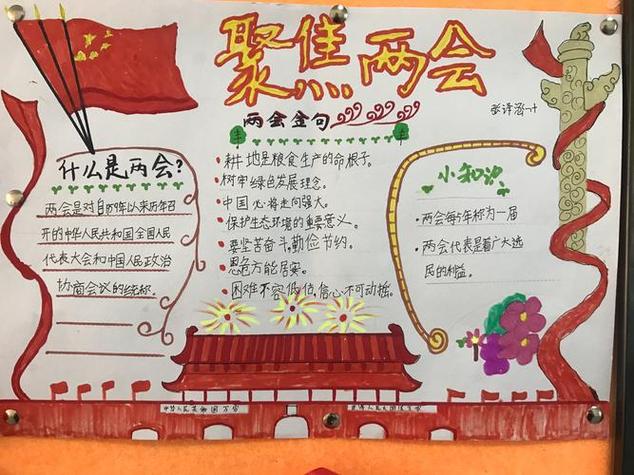 聚焦两会
两会金句
什么是两会?
两会是对自1959年以来历年召
开的中华人民共和国全国人民
代表大会和中国人民政治
协商会议的统称.
耕地是粮食生产的命根子.
树牢绿色发展理念.
中国必将走向强大.
保护生态环境的重要意义.
要坚苦奋斗,勤俭节约.
思危方能居安.
困难不容低估,信心不可动摇.
小知识
两会每5年称为一届
两会代表是着广大选
民的利益.